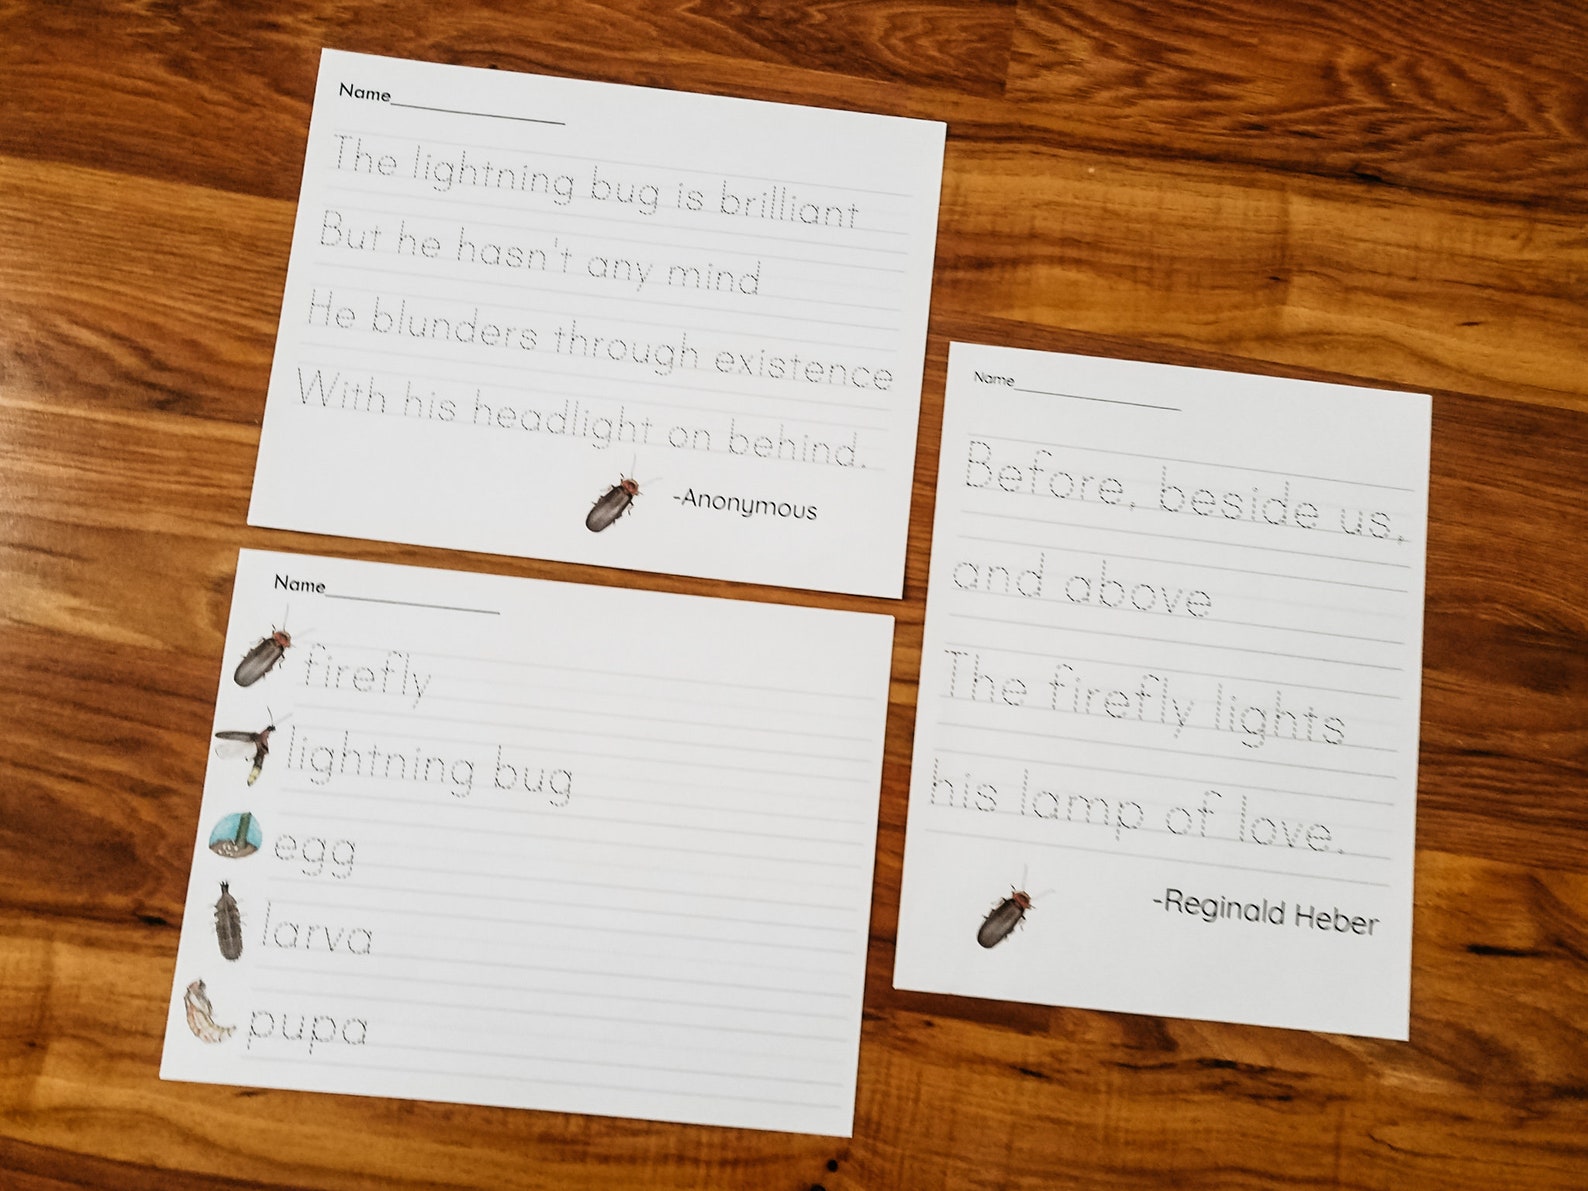 Name
The lightning bug is brilliant
But he hasn't any mind
He blunders through existence
With his headlight on behind.
-Anonymous
Name
firefly
lightning bug
egg
larva
pupa
Name
Before, beside us,
and above
The firefly lights
his lamp of love.
-Reginald Heber